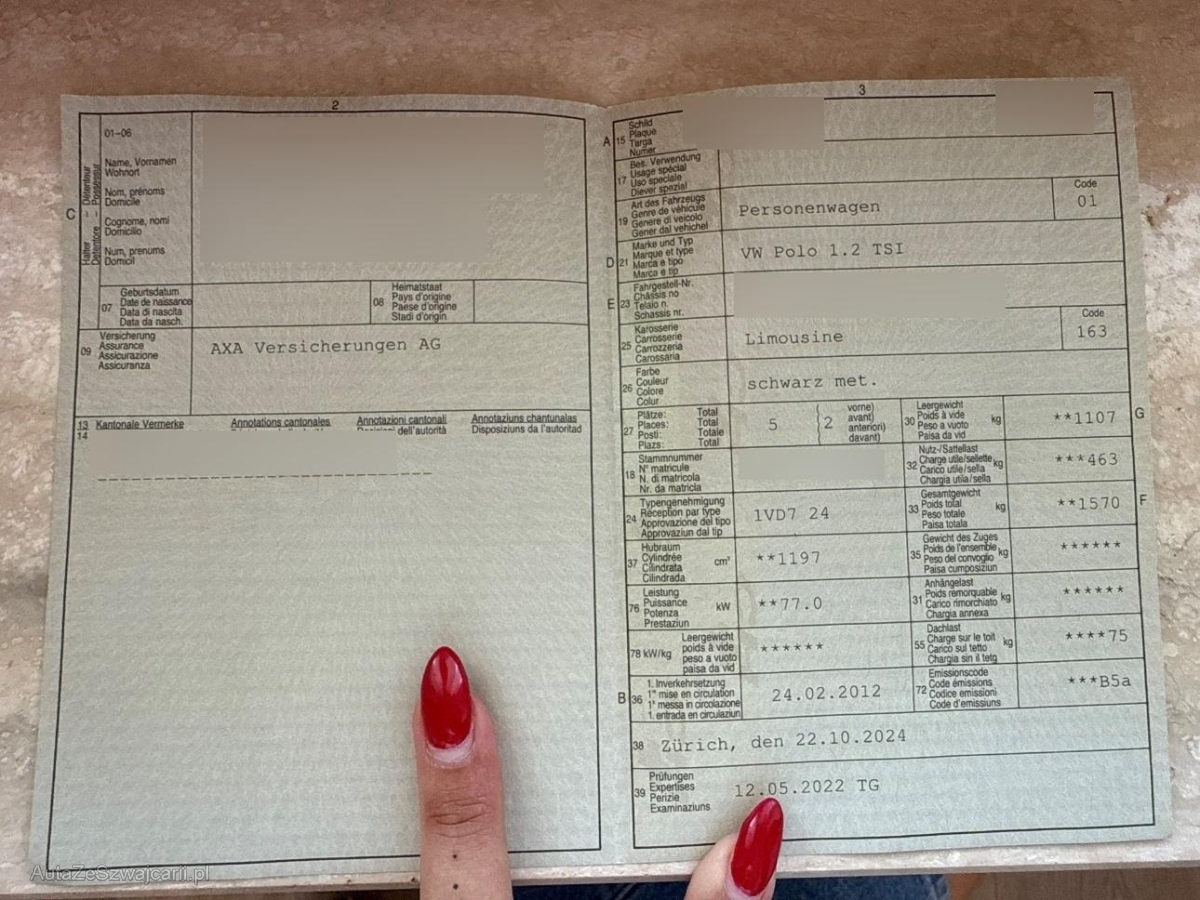 2
01–06
Name, Vornamen
Wohnort
Nom, prénoms
Domicile
Cognome, nomi
Domicilio
Num, prenums
Domicil
C
Halter – Détenteur
Detentore – Possessur
07
Geburtsdatum
Date de naissance
Data di nascita
Data da nasch.
08
Heimatstaat
Pays d'origine
Paese d'origine
Stadi d'origin
09
Versicherung
Assurance
Assicurazione
Assicuranza
AXA Versicherungen AG
13
14
Kantonale Vermerke
Annotations cantonales
Annotazioni cantonali
dell'autorità
Annotaziuns chantunalas
Disposiziuns da l'autoritad
3
A 15
Schild
Plaque
Targa
Numer
17
Bes. Verwendung
Usage spécial
Uso speciale
Diever spezial
19
Art des Fahrzeugs
Genre de véhicule
Genere di veicolo
Gener dal vehichel
Personenwagen
Code
01
D 21
Marke und Typ
Marque et type
Marca e tipo
Marca e tip
VW Polo 1.2 TSI
E 23
Fahrgestell-Nr.
Châssis no
Telaio n.
Schassis nr.
25
Karosserie
Carrosserie
Carrozzeria
Carossaria
Limousine
Code
163
26
Farbe
Couleur
Colore
Colur
schwarz met.
27
Plätze: Total
Places: Total
Posti: Totale
Plazs: Total
5
2
vorne)
avant)
anteriori)
davant)
30
Leergewicht
Poids à vide
Peso a vuoto
Paisa da vid
kg
**1107
G
18
Stammnummer
N° matricule
N. di matricola
Nr. da matricla
32
Nutz-/Sattellast
Charge utile/sellette
Carico utile/sella
Chargia utila/sella
kg
***463
24
Typengenehmigung
Réception par type
Approvazione del tipo
Approvaziun dal tip
1VD7 24
33
Gesamtgewicht
Poids total
Peso totale
Paisa totala
kg
**1570
F
37
Hubraum
Cylindrée
Cilindrata
Cilindrada
cm³
**1197
35
Gewicht des Zuges
Poids de l'ensemble
Peso del convoglio
Paisa cumposiziun
kg
******
76
Leistung
Puissance
Potenza
Prestaziun
kW
**77.0
31
Anhängelast
Poids remorquable
Carico rimorchiato
Chargia annexa
kg
******
78 kW/kg
Leergewicht
poids à vide
peso a vuoto
paisa da vid
******
55
Dachlast
Charge sur le toit
Carico sul tetto
Chargia sin il tetg
kg
****75
B 36
1. Inverkehrsetzung
1re mise en circulation
1a messa in circolazione
1. entrada en circulaziun
24.02.2012
72
Emissionscode
Code émissions
Codice emissioni
Code d'emissiuns
***B5a
38
Zürich, den 22.10.2024
39
Prüfungen
Expertises
Perizie
Examinaziuns
12.05.2022 TG
AutaZeSzwajcarii.pl